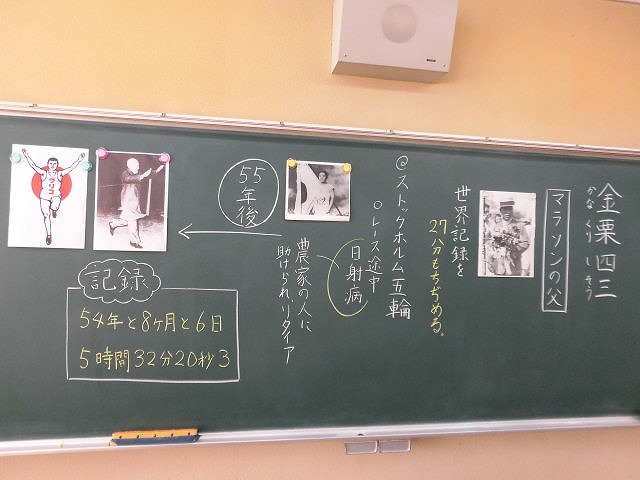 金栗四三
かな くり し そう
マラソンの父
世界記録を
27分もちぢめる。
@ストックホルム五輪
○レース途中
日射病
農家の人に
助けられ、リタイア
55年後
記録
54年と8ヶ月と6日
5時間32分20秒3
グリコ